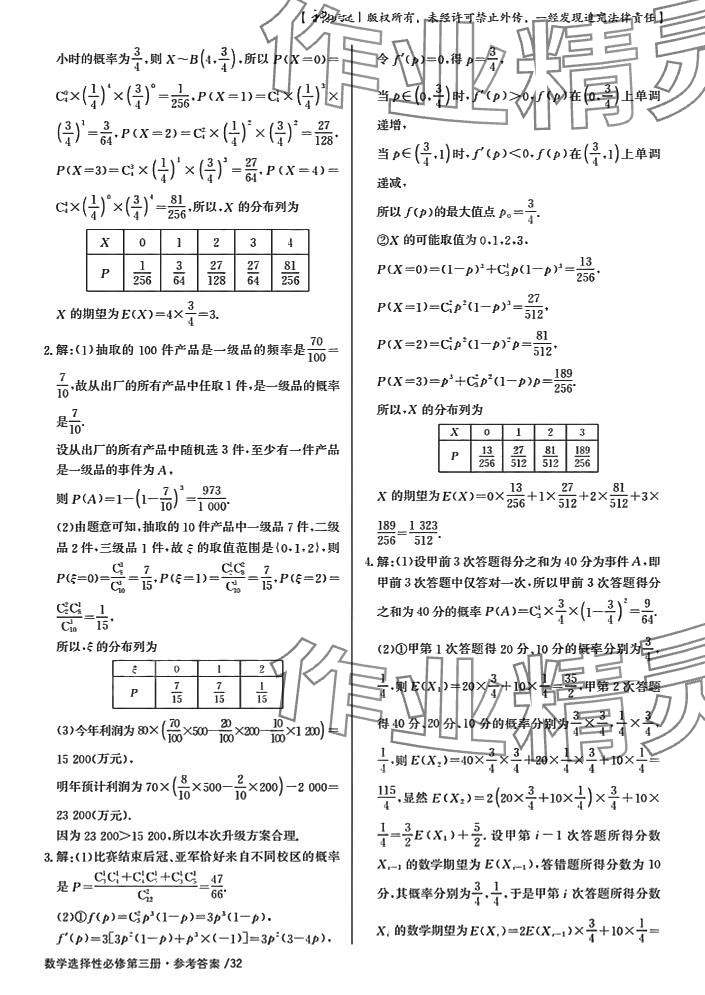 版权所有，未经许可禁止外传，一经发现追究法律责任】
小时的概率为3/4,则 X～B(4,3/4),所以 P(X=0)=
C₄⁰×(1/4)⁴×(3/4)⁰=1/256,P(X=1)=C₄¹×(1/4)³×
(3/4)¹=3/64,P(X=2)=C₄²×(1/4)²×(3/4)²=27/128,
P(X=3)=C₄³×(1/4)¹×(3/4)³=27/64,P(X=4)=
C₄⁴×(1/4)⁰×(3/4)⁴=81/256,所以,X 的分布列为
X 0 1 2 3 4
P 1/256 3/64 27/128 27/64 81/256
X 的期望为E(X)=4×3/4=3.
2.解:(1)抽取的 100 件产品是一级品的频率是70/100=
7/10,故从出厂的所有产品中任取1件,是一级品的概率
是7/10.
设从出厂的所有产品中随机选 3 件,至少有一件产品
是一级品的事件为 A,
则 P(A)=1-(1-7/10)³=973/1 000.
(2)由题意可知,抽取的10件产品中一级品7件,二级
品2件,三级品 1 件,故 ξ 的取值范围是{0,1,2},则
P(ξ=0)=C₈³/C₁₀³=7/15,P(ξ=1)=C₂¹C₈²/C₁₀³=7/15,P(ξ=2)=
C₂²C₈¹/C₁₀³=1/15,
所以,ξ 的分布列为
ξ 0 1 2
P 7/15 7/15 1/15
(3)今年利润为80×(70/100×500-20/100×200-10/100×1 200)=
15 200(万元),
明年预计利润为70×(8/10×500-2/10×200)-2 000=
23 200(万元).
因为23 200>15 200,所以本次升级方案合理.
3.解:(1)比赛结束后冠、亚军恰好来自不同校区的概率
是 P=
=47/66.
(2)①f(p)=C₃²p³(1-p)=3p³(1-p),
f′(p)=3[3p²(1-p)+p³×(-1)]=3p²(3-4p),
数学选择性必修第三册·参考答案 /32
令 f′(p)=0,得 p=3/4,
当 p∈(0,3/4)时,f′(p)>0,f(p)在(0,3/4)上单调
递增,
当 p∈(3/4,1)时,f′(p)<0,f(p)在(3/4,1)上单调
递减,
所以 f(p)的最大值点 p₀=3/4.
②X 的可能取值为 0,1,2,3,
P(X=0)=(1-p)³+C₃¹p(1-p)³=13/256,
P(X=1)=C₃²p²(1-p)³=27/512,
P(X=2)=C₄²p²(1-p)²p=81/512,
P(X=3)=p³+C₃²p²(1-p)p=189/256.
所以,X 的分布列为
X 0 1 2 3
P 13/256 27/512 81/512 189/256
X 的期望为E(X)=0×13/256+1×27/512+2×81/512+3×
189/256=1 323/512.
4.解:(1)设甲前 3 次答题得分之和为 40 分为事件 A,即
甲前 3 次答题中仅答对一次,所以甲前 3 次答题得分
之和为 40 分的概率 P(A)=C₃¹×3/4×(1-3/4)²=9/64.
(2)①甲第 1 次答题得 20 分、10 分的概率分别为3/4,
1/4,则E(X₁)=20×3/4+10×1/4=35/2,甲第 2 次答题
得 40 分、20 分、10 分的概率分别为3/4×3/4,1/4×3/4,
1/4,则E(X₂)=40×3/4×3/4+20×1/4×3/4+10×1/4=
115/4,显然 E(X₂)=2(20×3/4+10×1/4)×3/4+10×
1/4=3/2E(X₁)+5/2. 设甲第 i-1 次答题所得分数
Xᵢ₋₁的数学期望为 E(Xᵢ₋₁),答错题所得分数为 10
分,其概率分别为3/4,1/4,于是甲第 i 次答题所得分数
Xᵢ 的数学期望为E(Xᵢ)=2E(Xᵢ₋₁)×3/4+10×1/4=
作业精灵
作业精灵